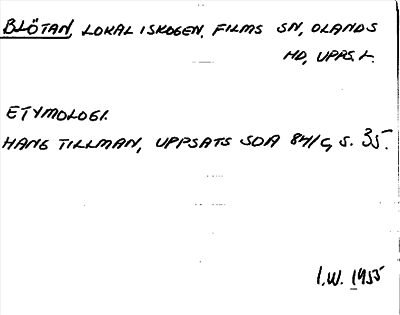 BLÖTAN, LOKAL I SKOGEN, FILMS SN, OLANDS
HD, UPPS. L.
ETYMOLOGI.
HANS TILLMAN, UPPSATS SOA 84/C, S. 35.
I.W. 1955